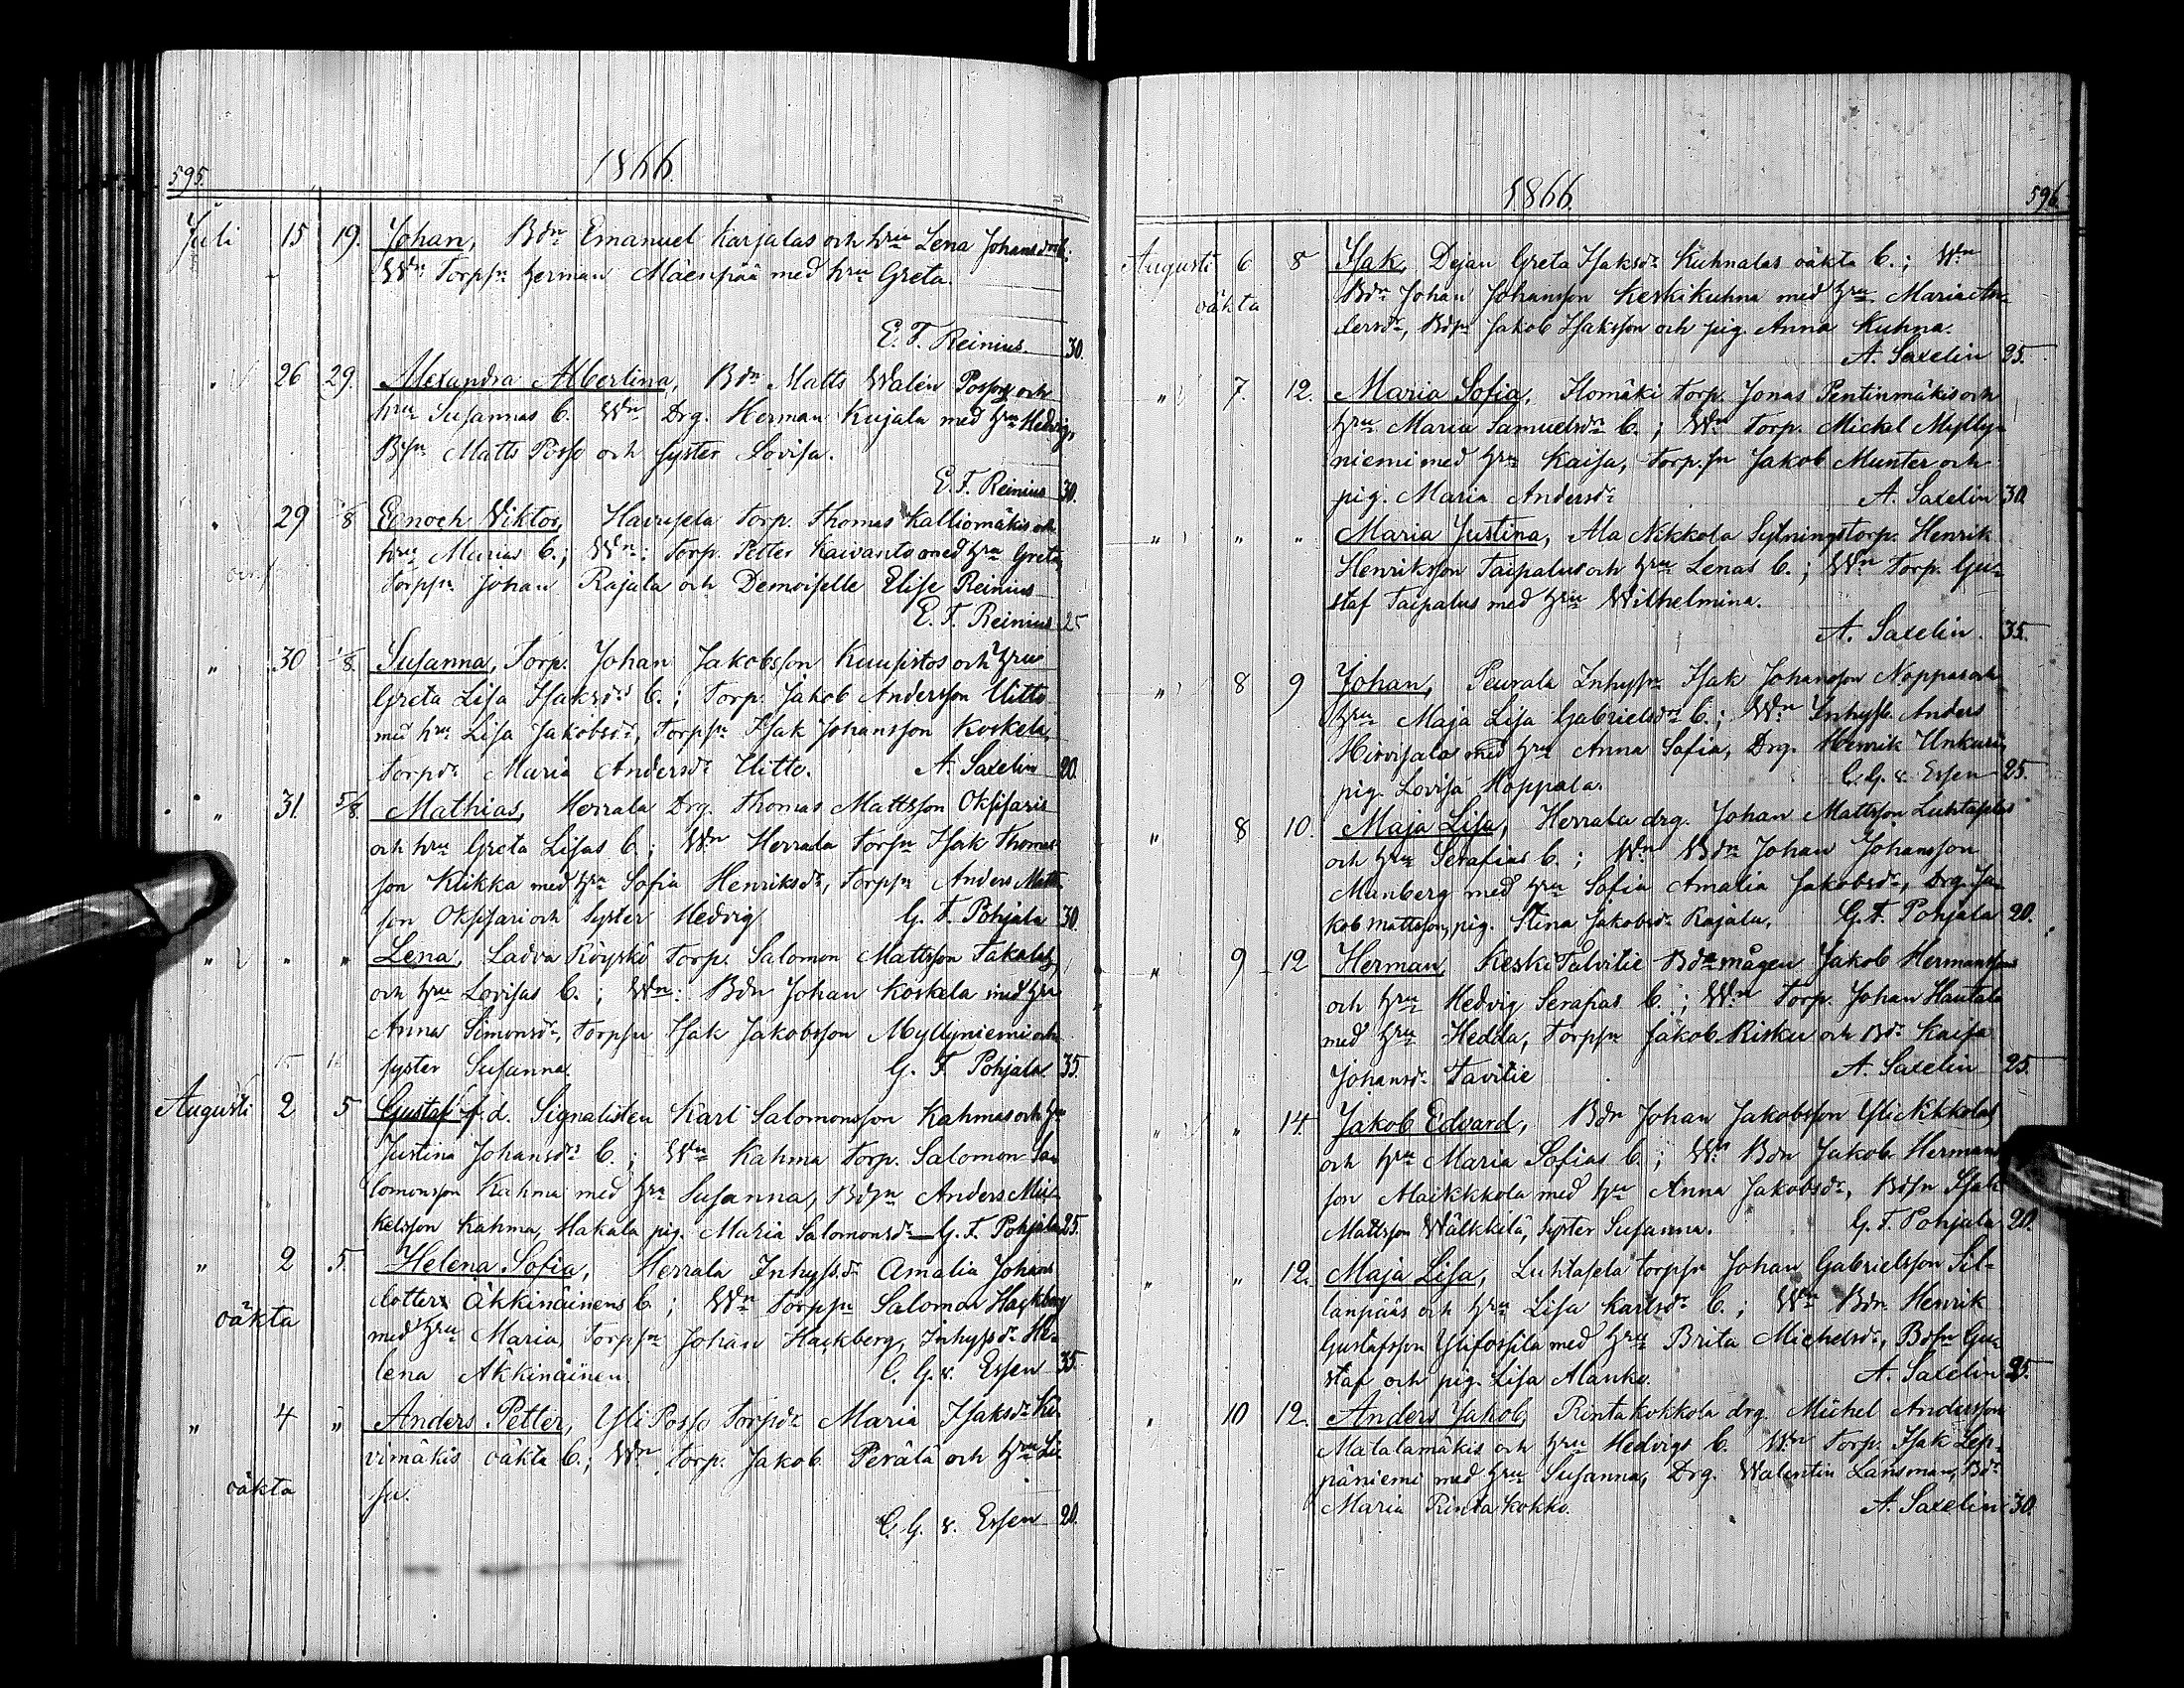 595.
1866.
Juli 15 19. Johan, Bdn Emanuel Karjalas och hru Lena Johansdrs b.;
Wn Torpsn Herman Mäenpää med hru Greta.
E. F. Reinius. 30.
" 26 29. Alexandra Albertina, Bdn Matts Walén Posson och
hru Susannas b. Wn Drg. Herman Kujala med hru Hedvig,
Bsn Matts Posso och syster Lovisa.
E. F. Reinius 30.
" 29 1/8 Ennoch Wiktor, Havusela Torp. Thomas Kalliomäkis och
hru Marias b.; Wn: Torp. Petter Kaivanto med hru Greta,
Torpsn Johan Rajala och Demoiselle Elise Reinius
E. F. Reinius 25
" 30 1/8. Susanna, Torp. Johan Jakobsson Kuusistos och hru
Greta Lisa Isaksdrs b.; Torp. Jakob Andersson Uitto
med hru Lisa Jakobsdr, Torpsn Isak Johansson Koskela,
Torpdr Maria Andersdr Uitto. A. Saxelin 20.
" 31. 5/8. Mathias, Herrala Drg. Thomas Mattsson Okssaris
och hru Greta Lisas b.; Wn Herrala Torpsn Isak Thomas-
son Klikka med hru Sofia Henriksdr, Torpsn Anders Matts-
son Okssari och syster Hedvig G. F. Pohjala 30.
" " " Lena, Ladva Röyskö Torp. Salomon Mattsson Takalas
och hru Lovisas b.; Wn: Bdn Johan Koskela med hru
Anna Simonsdr, Torpsn Isak Jakobsson Myllyniemi och
syster Susanna. G. F. Pohjala. 35.
Augusti 2 5 Gustaf f.d. Signalisten Karl Salomonsson Kahmas och hru
Justina Johansdrs b.; Wn Kahma Torp. Salomon Sa-
lomonsson Kahma med hru Susanna, Bdsn Anders Mic-
kelsson Kahma, Hakala pig. Maria Salomonsdr G. F. Pohjala 25.
" 2 5. Helena Sofia, Herrala Inhyss.dr Amalia Johans
dotter Äkkinäinens b.; Wn Torpsn Salomon Hackberg
oäkta
med hru Maria, Torpsn Johan Hackberg, Inhyss.dr He-
lena Äkkinäinen. C. G. v. Essen 35.
" 4 " Anders Petter, Yli Posso Torpdr Maria Isaksdr Ki-
vimäkis oäkta b.; Wn Torp. Jakob Perälä och hru Li-
oäkta
sa.
C. G. v. Essen 20.
1866.
596.
Augusti 6 8 Isak, Dejan Greta Isaksdr Kuhnalas oäkta b.; Wn
oäkta
Bdn Johan Johansson Keskikuhna med hru Maria An-
dersdr, Bdsn Jakob Isaksson och pig. Anna Kuhna.
A. Saxelin 25.
" 7. 12. Maria Sofia, Ilomäki Torp. Jonas Pentinmäkis och
hru Maria Samuelsdrs b.; Wn Torp. Mickel Mylly-
niemi med hru Kaisa, Torp.sn Jakob Munter och
pig. Maria Andersdr A. Saxelin 30.
" " " Maria Justina, Ala Nikkola Sytningstorp. Henrik
Henriksson Taipalus och hru Lenas b.; Wn Torp. Gu-
staf Taipalus med hru Wilhelmina.
A. Saxelin. 35.
" 8 9 Johan, Peurala Inhyssn Isak Johansson Noppas och
hru Maja Lisa Gabrielsdrs b.; Wn Inhyss. Anders
Hirvisala med hru Anna Sofia, Drg. Henrik Unkuri,
pig. Lovisa Hoppala. C. G. v. Essen 25.
" 8 10. Maja Lisa, Herrala drg. Johan Mattsson Luhtaselas
och hru Serafias b.; Wn Bdn Johan Johansson
Manberg med hru Sofia Amalia Jakobsdr, Drg. Ja-
kob Mattsson, pig. Stina Jakobsdr Rajala. G. F. Pohjala 20.
" 9 12 Herman, Keski Talvitie Bdemågen Jakob Hermanssons
och hru Hedvig Serafias b.; Wn Torp. Johan Hautala
med hru Hedda, Torpsn Jakob Risku och Bdr Kaisa
Johansdr Tavitie A. Saxelin 25.
" " 14. Jakob Edvard, Bdn Johan Jakobsson Yli Kkkolas
och hru Maria Sofias b.; Wn Bdn Jakob Hermans
son Maikkkola med hru Anna Jakobsdr, Bdsn Isak
Mattsson Wälkkilä, syster Susanna. G. F. Pohjala 20.
" " 12. Maja Lisa, Luhtasela torpsn Johan Gabrielsson Sil-
lanpääs och hru Lisa Karlsdrs b.; Wn Bdn Henrik
Gustafsson Yliforsila med hru Brita Michelsdr, Bdsn Gu-
staf och pig. Lisa Alanko. A. Saxelin 25.
" 10 12. Anders Jakob, Rintakokkola drg. Michel Andersson
Malalamäkis och hru Hedvigs b. Wn Torp. Isak Lep-
päniemi med hru Susanna, Drg. Walentin Länsman, Bdr
Maria Rintakokko. A. Saxelin 30.